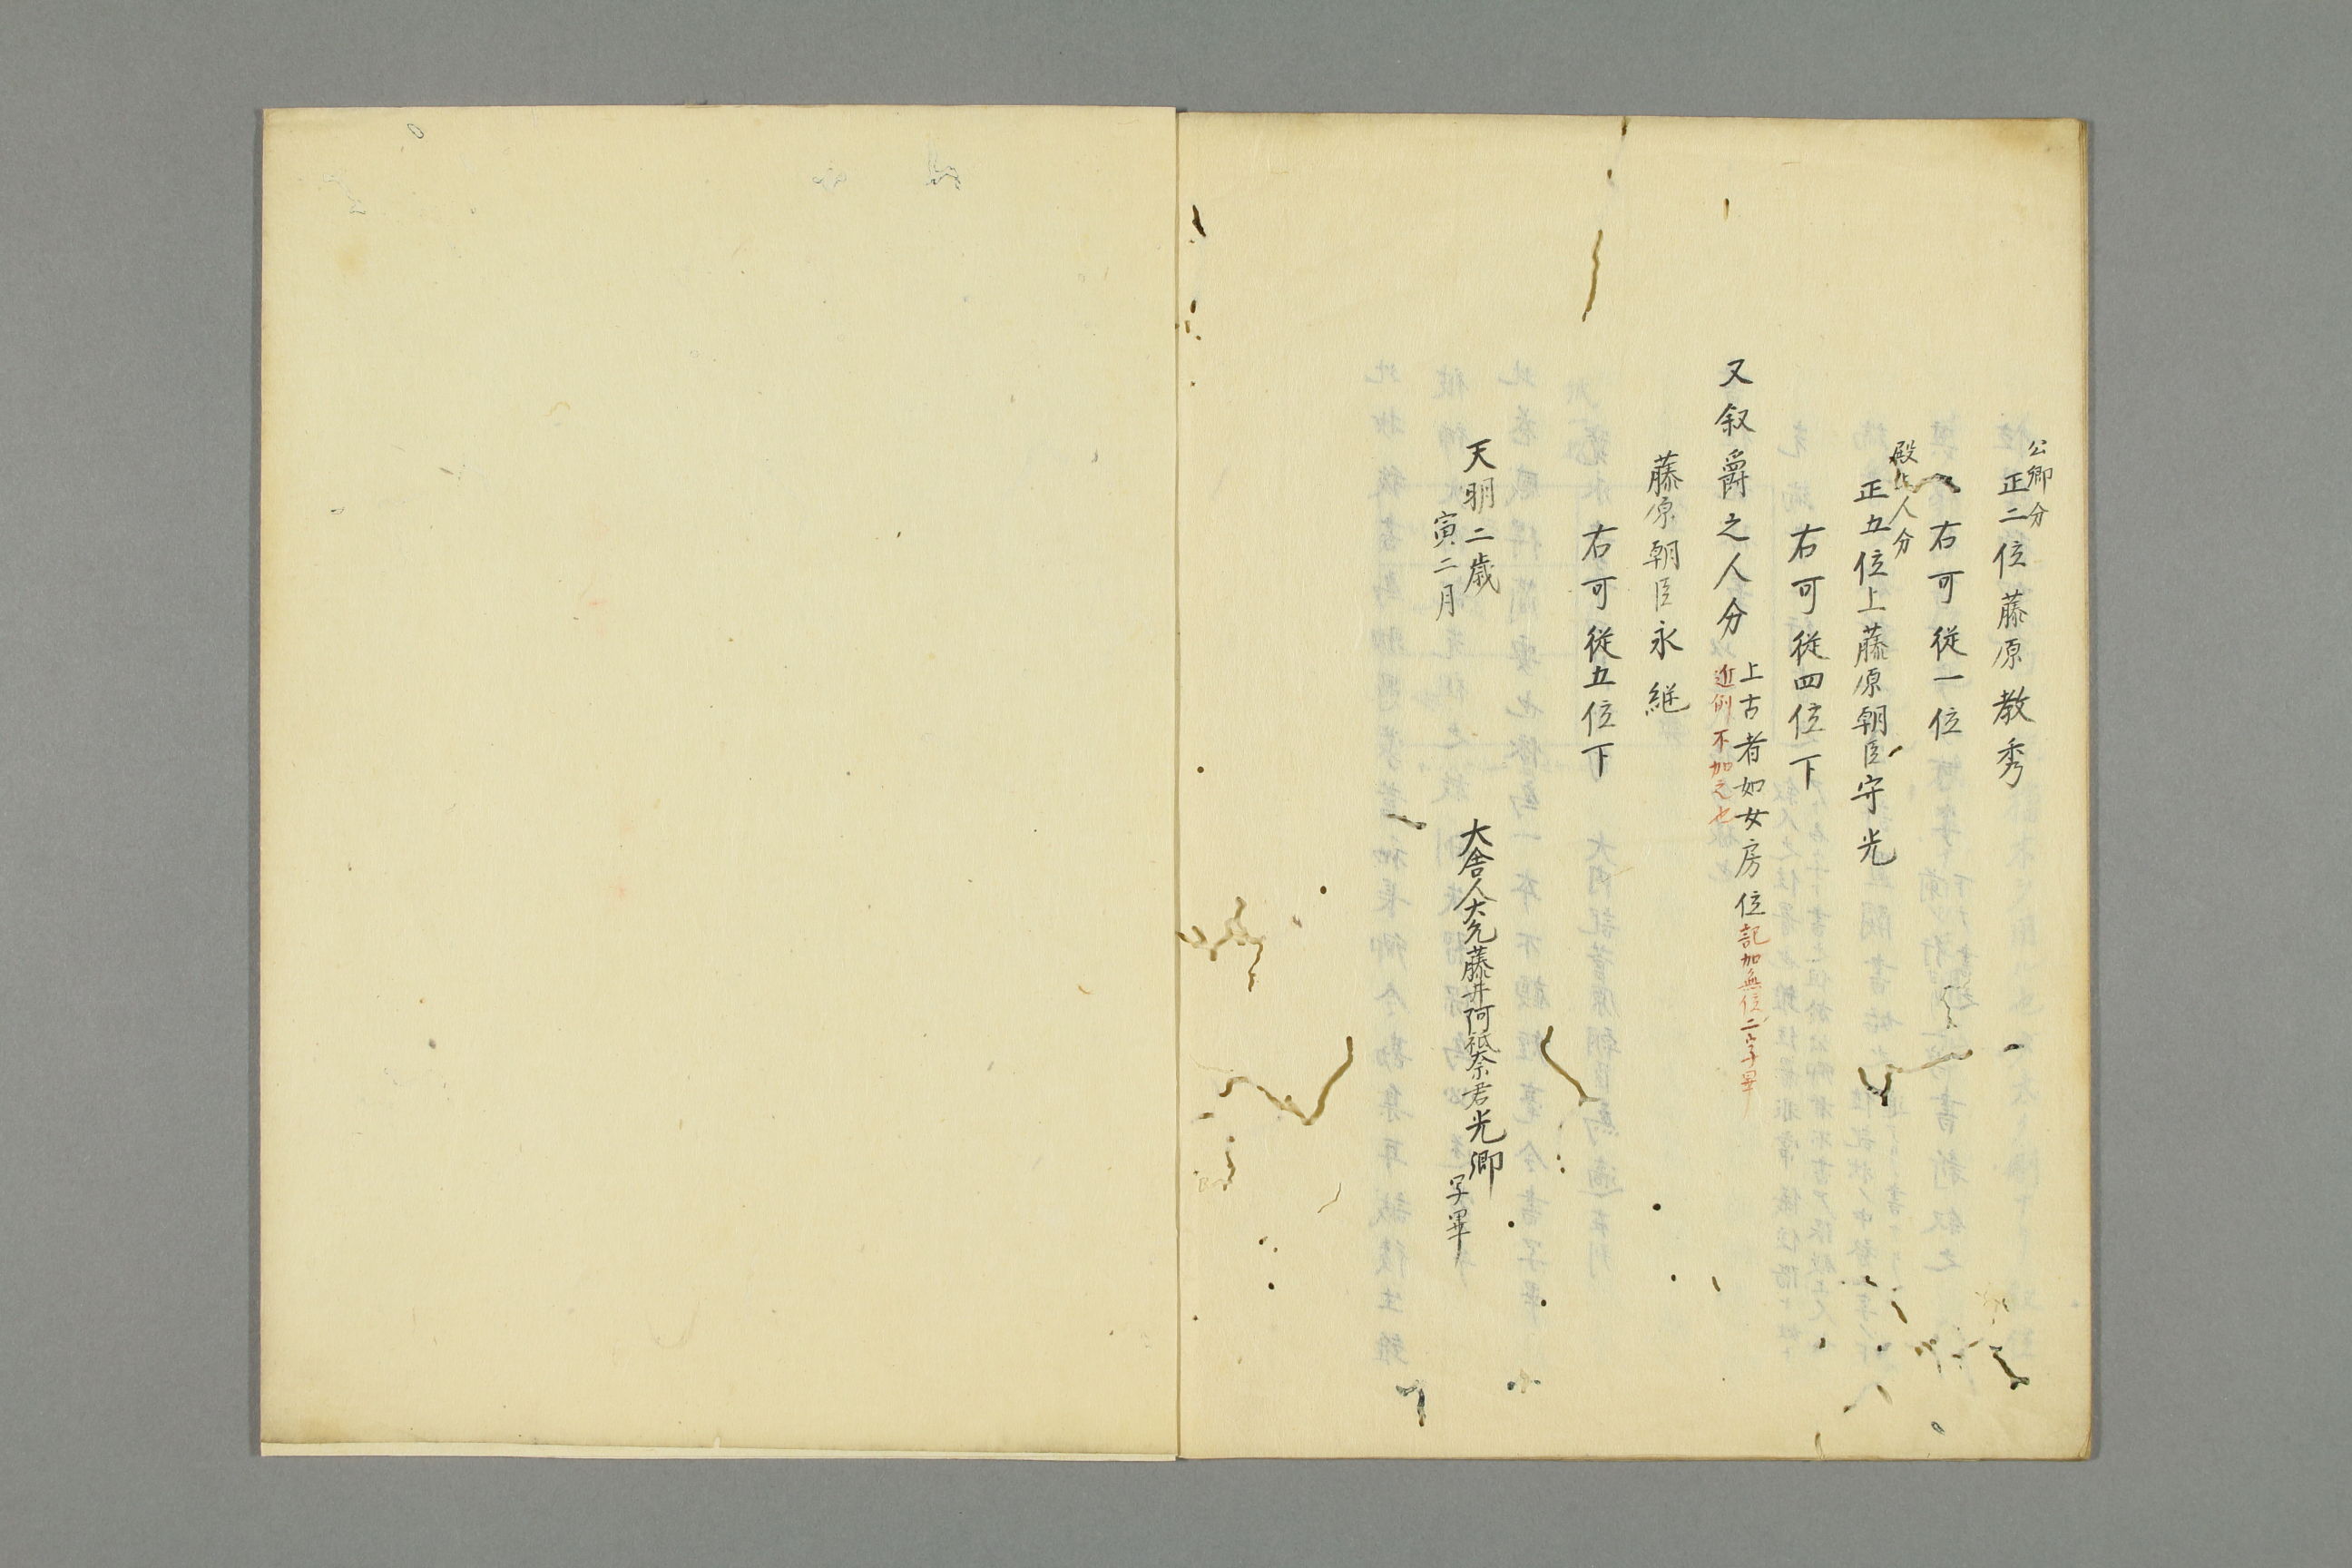 公卿分
正二位藤原教秀
右可従一位
殿上人分
正五位上藤原朝臣守光
右可従四位下
又叙爵之人分
上古者如女房位記加無位二字畢
近例不加之也
藤原朝臣永継
右可従五位下
天明二歳
寅二月
大舎人大允藤井阿祗奈君光卿
写畢